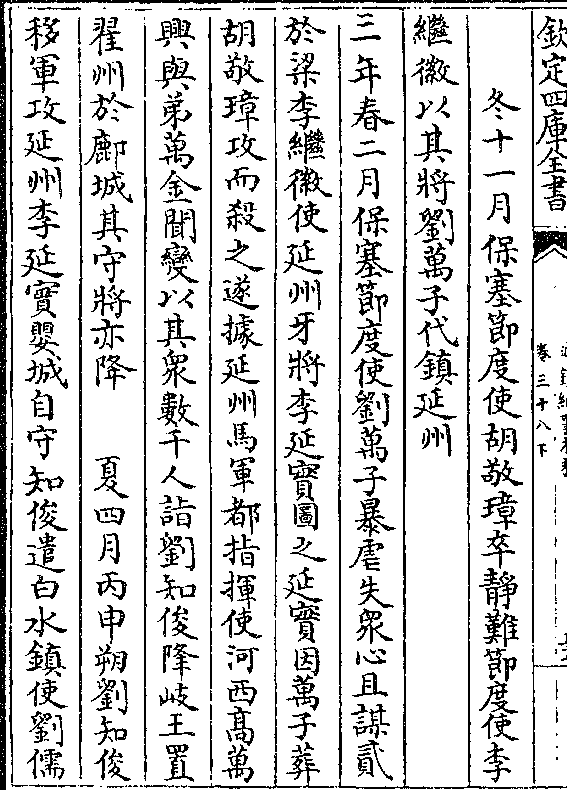 欽定四庫全書
卷三十八下
冬十一月保塞節度使胡敬璋卒靜難節度使李
繼徽以其將劉萬子代鎮延州
三年春二月保塞節度使劉萬子暴虐失衆心且謀貳
於梁李繼徽使延州牙將李延實圖之延實因萬子葬
胡敬璋攻而殺之遂據延州馬軍都指揮使河西高萬
興與弟萬金聞變以其衆數千人詣劉知俊降岐王置
翟州於鄜城其守將亦降 夏四月丙申朔劉知俊
移軍攻延州李延實嬰城自守知俊遣白水鎮使劉儒